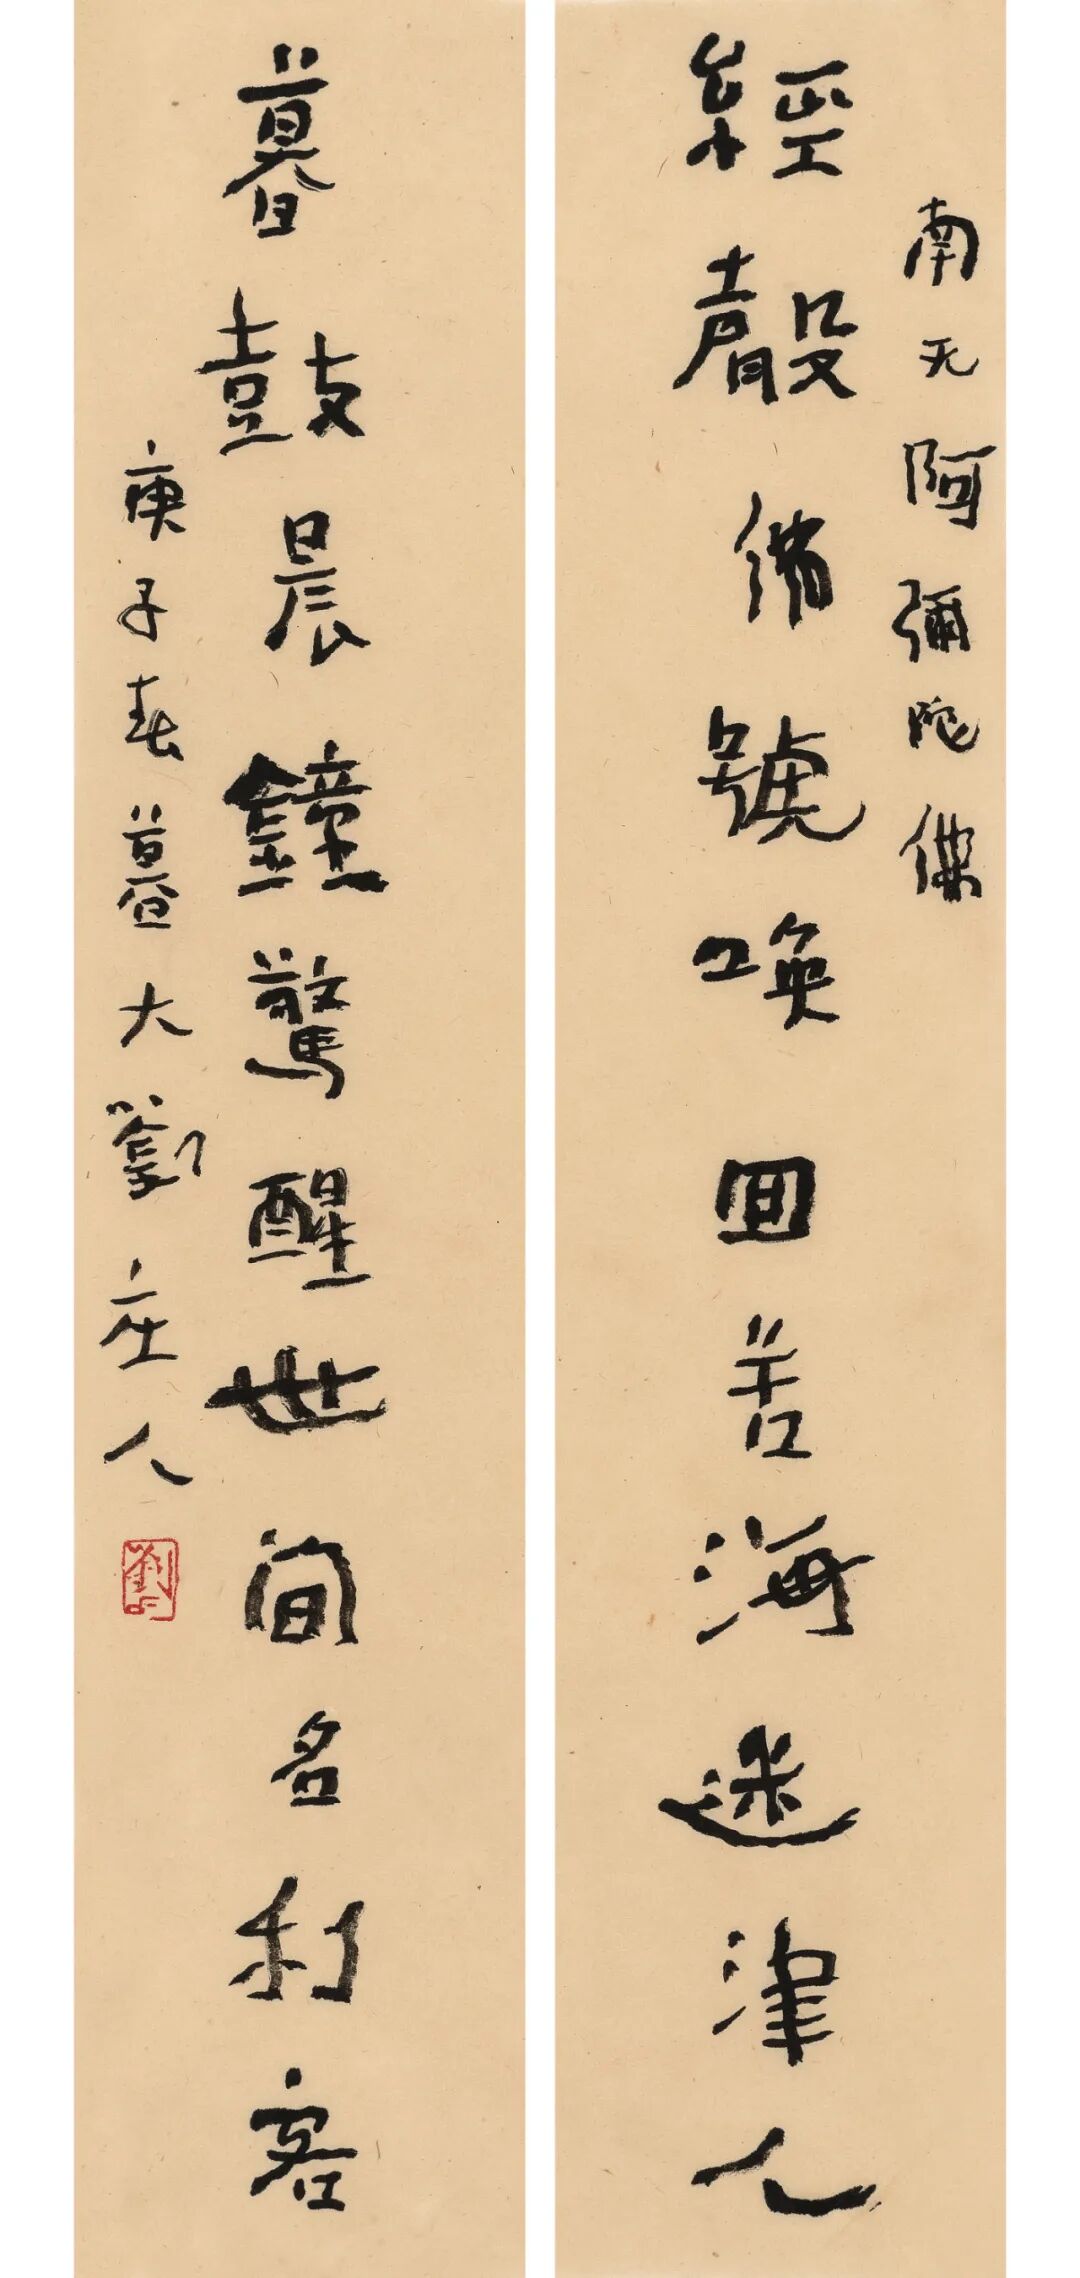 南无阿彌陀佛
經聲佛號喚回苦海迷津人
暮鼓晨鐘驚醒世間名利客
庚子春暮大劉庄人